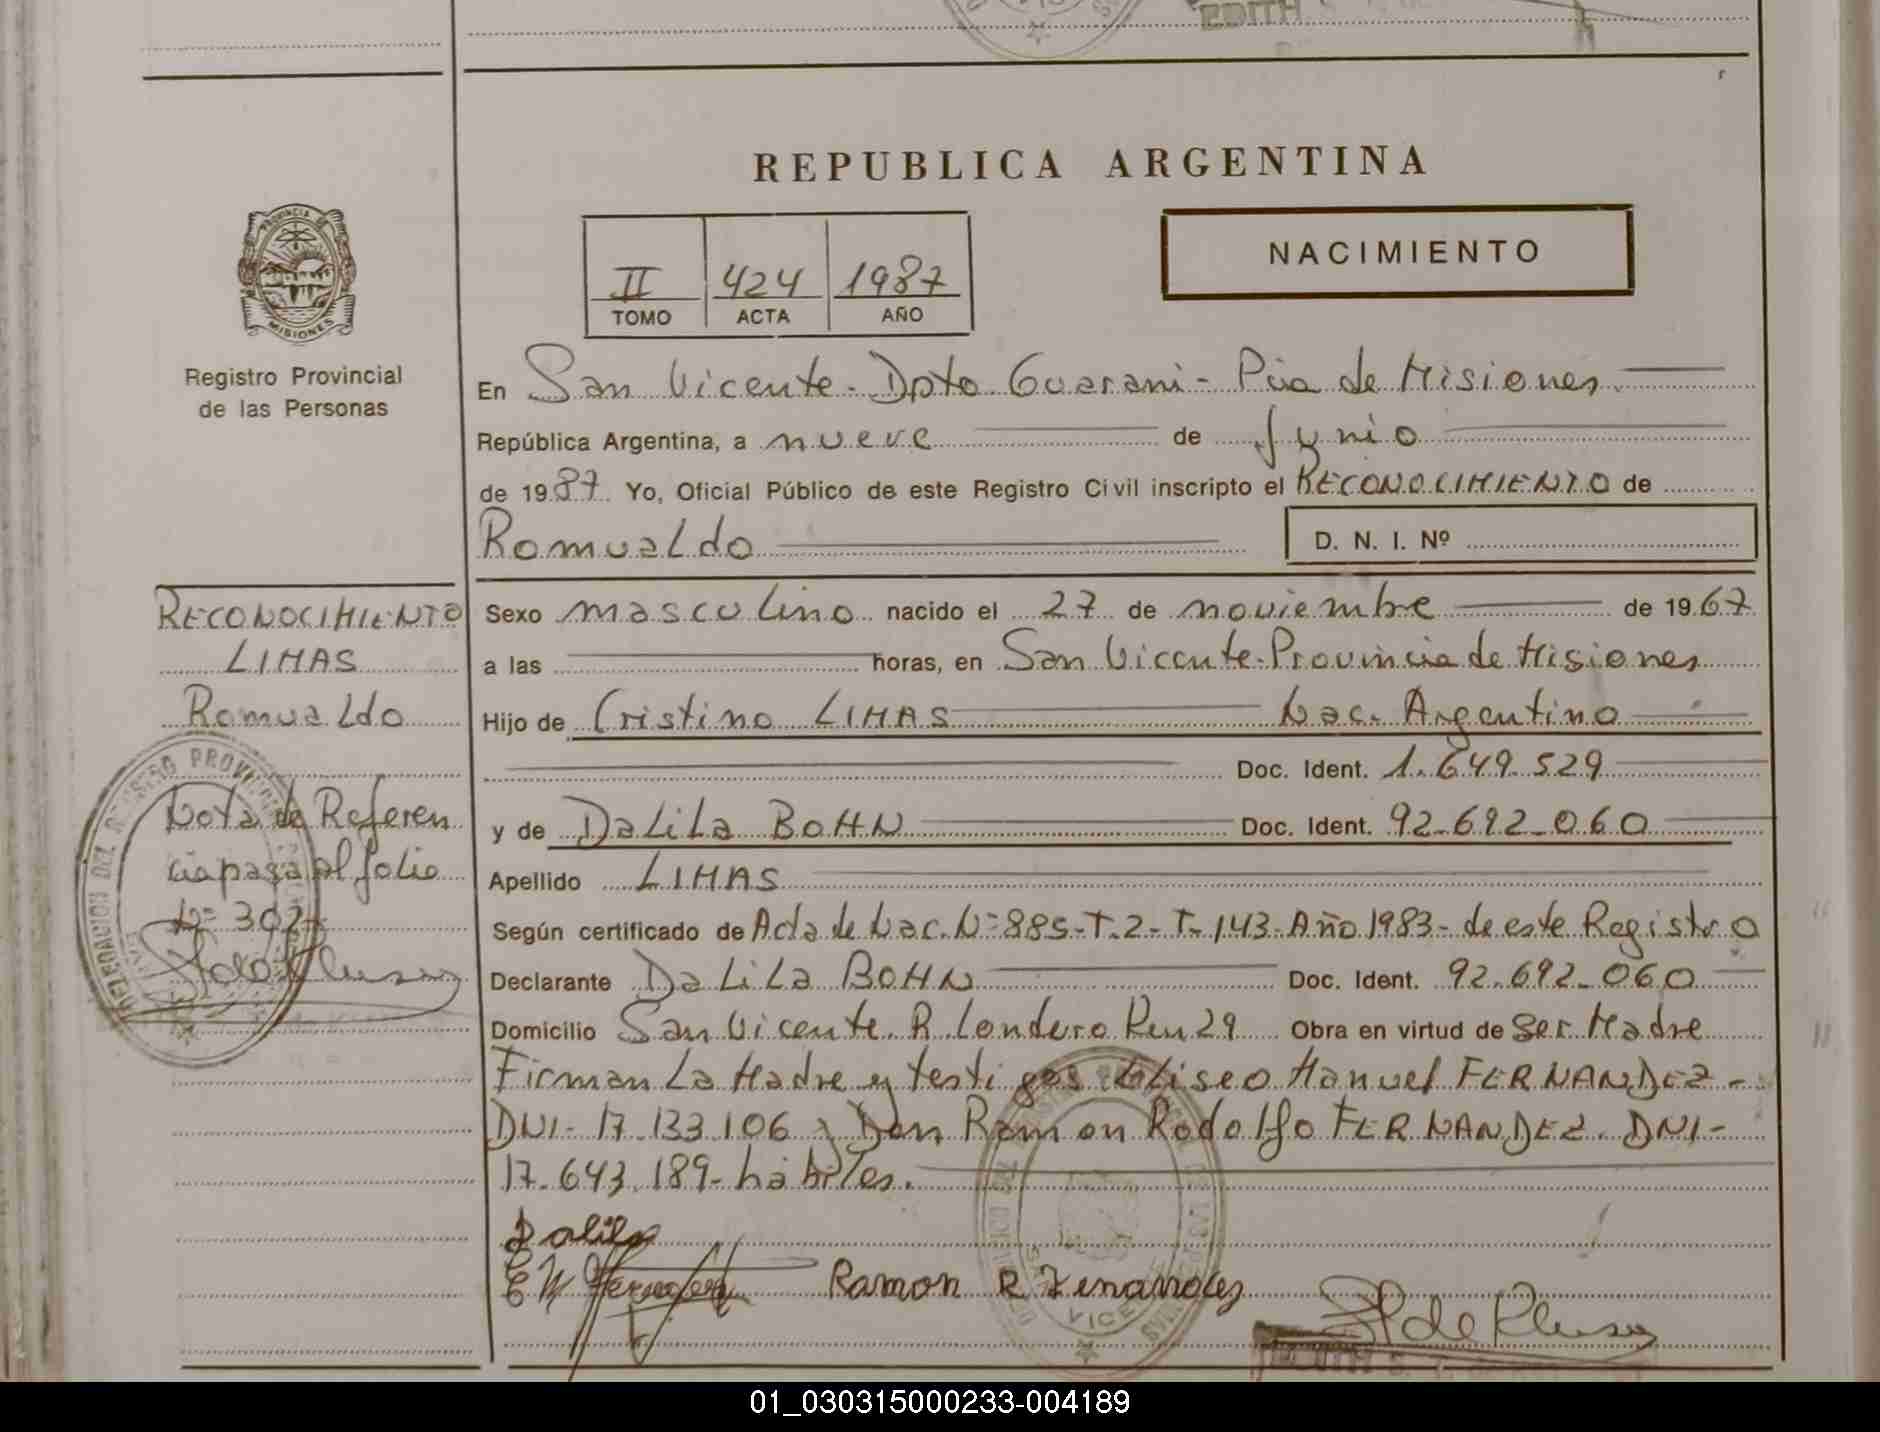 EDITH
REPUBLICA ARGENTINA
PROVINCIA DE
MISIONES
Registro Provincial
de las Personas
II 424 1987
TOMO ACTA AÑO
NACIMIENTO
En San Vicente - Dpto Guarani - Pcia de Misiones.
República Argentina, a nueve de Junio
de 1987 Yo, Oficial Público de este Registro Civil inscripto el RECONOCIMIENTO de
Romualdo D. N. I. Nº
RECONOCIMIENTO
LIMAS
Romualdo
Nota de Referen
cia pasa al folio
Nº 302
Sexo masculino nacido el 27 de noviembre de 1967
a las horas, en San Vicente-Provincia de Misiones
Hijo de Cristino LIMAS Nac. Argentino
Doc. Ident. 1.649.529
y de DaLiLa BOHN Doc. Ident. 92.692.060
Apellido LIMAS
Según certificado de Acta de Nac. Nº 885-T.2-T-143-Año 1983- de este Registro
Declarante DaLiLa BOHN Doc. Ident. 92.692.060
Domicilio San Vicente. R. Londero Km 29 Obra en virtud de Ser Madre
Firman La Madre y testigos Eliseo Manuel FERNANDEZ -
DNI- 17.133.106 y Don Ramon Rodolfo FERNANDEZ. DNI-
17.643.189- hábiles.
Dalila
E M Fernandez Ramon R Fenandez
EDITH
01_030315000233-004189